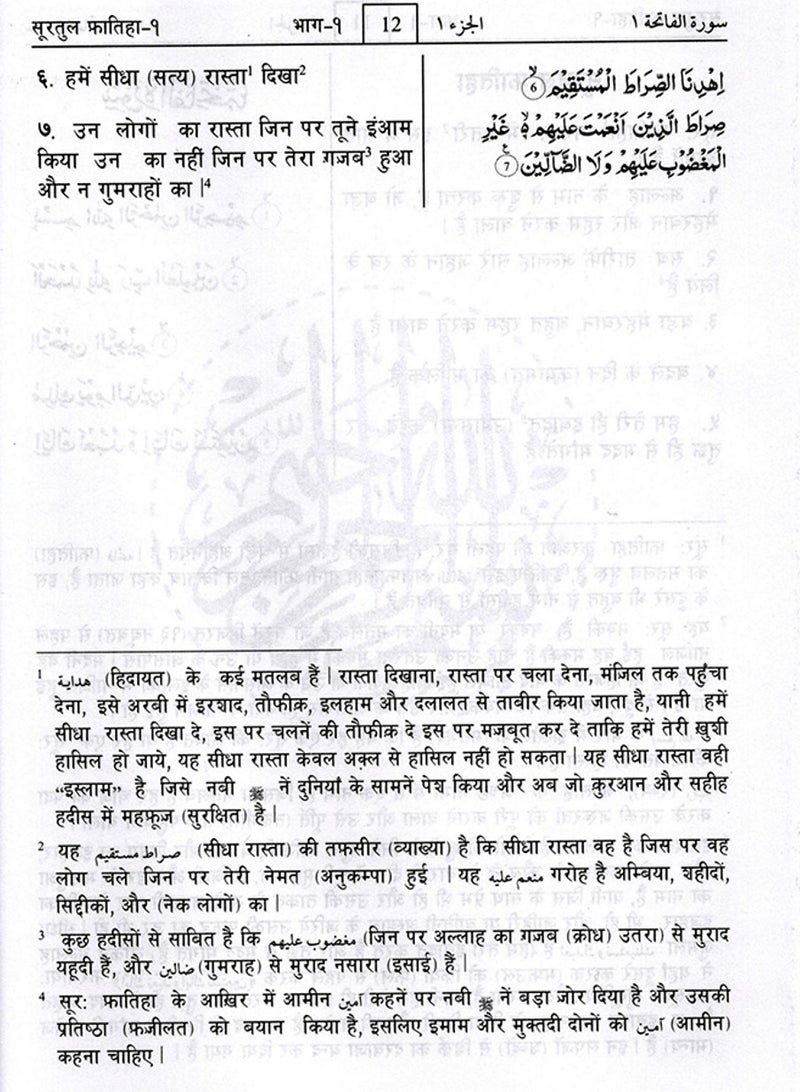 सूरतुल फ़ातिहा-१ भाग-१ 12 الجزء ١ سورة الفاتحة ١
६. हमें सीधा (सत्य) रास्ता¹ दिखा²
७. उन लोगों का रास्ता जिन पर तूने इंआम
किया उन का नहीं जिन पर तेरा गजब³ हुआ
और न गुमराहों का |⁴
اِهْدِنَا الصِّرَاطَ الْمُسْتَقِيْمَ ۙ6
صِرَاطَ الَّذِيْنَ اَنْعَمْتَ عَلَيْهِمْ ۙ غَيْرِ
الْمَغْضُوْبِ عَلَيْهِمْ وَلَا الضَّآلِّيْنَ 7
¹ هداية (हिदायत) के कई मतलब हैं | रास्ता दिखाना, रास्ता पर चला देना, मंजिल तक पहुंचा
देना, इसे अरबी में इरशाद, तौफ़ीक़, इलहाम और दलालत से ताबीर किया जाता है, यानी हमें
सीधा रास्ता दिखा दे, इस पर चलनें की तौफ़ीक दे इस पर मजबूत कर दे ताकि हमें तेरी खुशी
हासिल हो जाये, यह सीधा रास्ता केवल अक़्ल से हासिल नहीं हो सकता | यह सीधा रास्ता वही
“इस्लाम” है जिसे नबी ﷺ नें दुनियाँ के सामनें पेश किया और अब जो क़ुरआन और सहीह
हदीस में महफ़ूज (सुरक्षित) है |
² यह صراط مستقيم (सीधा रास्ता) की तफ़सीर (व्याख्या) है कि सीधा रास्ता वह है जिस पर वह
लोग चले जिन पर तेरी नेमत (अनुकम्पा) हुई | यह منعم عليه गरोह है अम्बिया, शहीदों,
सिद्दीकों, और (नेक लोगों) का |
³ कुछ हदीसों से साबित है कि مغضوب عليهم (जिन पर अल्लाह का गजब (क्रोध) उतरा) से मुराद
यहूदी हैं, और ضالين (गुमराह) से मुराद नसारा (इसाई) हैं |
⁴ सूर: फ़ातिहा के आखिर में आमीन امين कहनें पर नबी ﷺ नें बड़ा जोर दिया है और उसकी
प्रतिष्ठा (फ़जीलत) को बयान किया है, इसलिए इमाम और मुक्तदी दोनों को امين (आमीन)
कहना चाहिए |